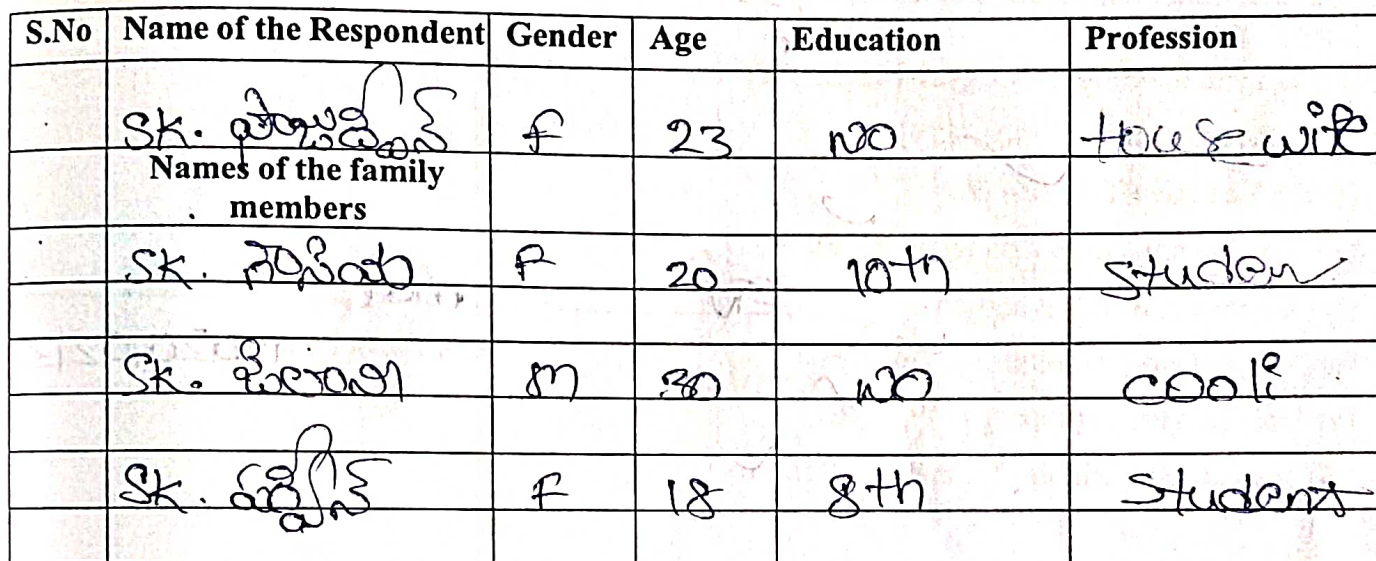 S.No Name of the Respondent Gender Age Education Profession
SK. F 23 NO House wife
Names of the family
members
SK. నాసియా F 20 10th Studen
SK. మీరావలి M 30 NO cooli
SK. F 18 8th Student